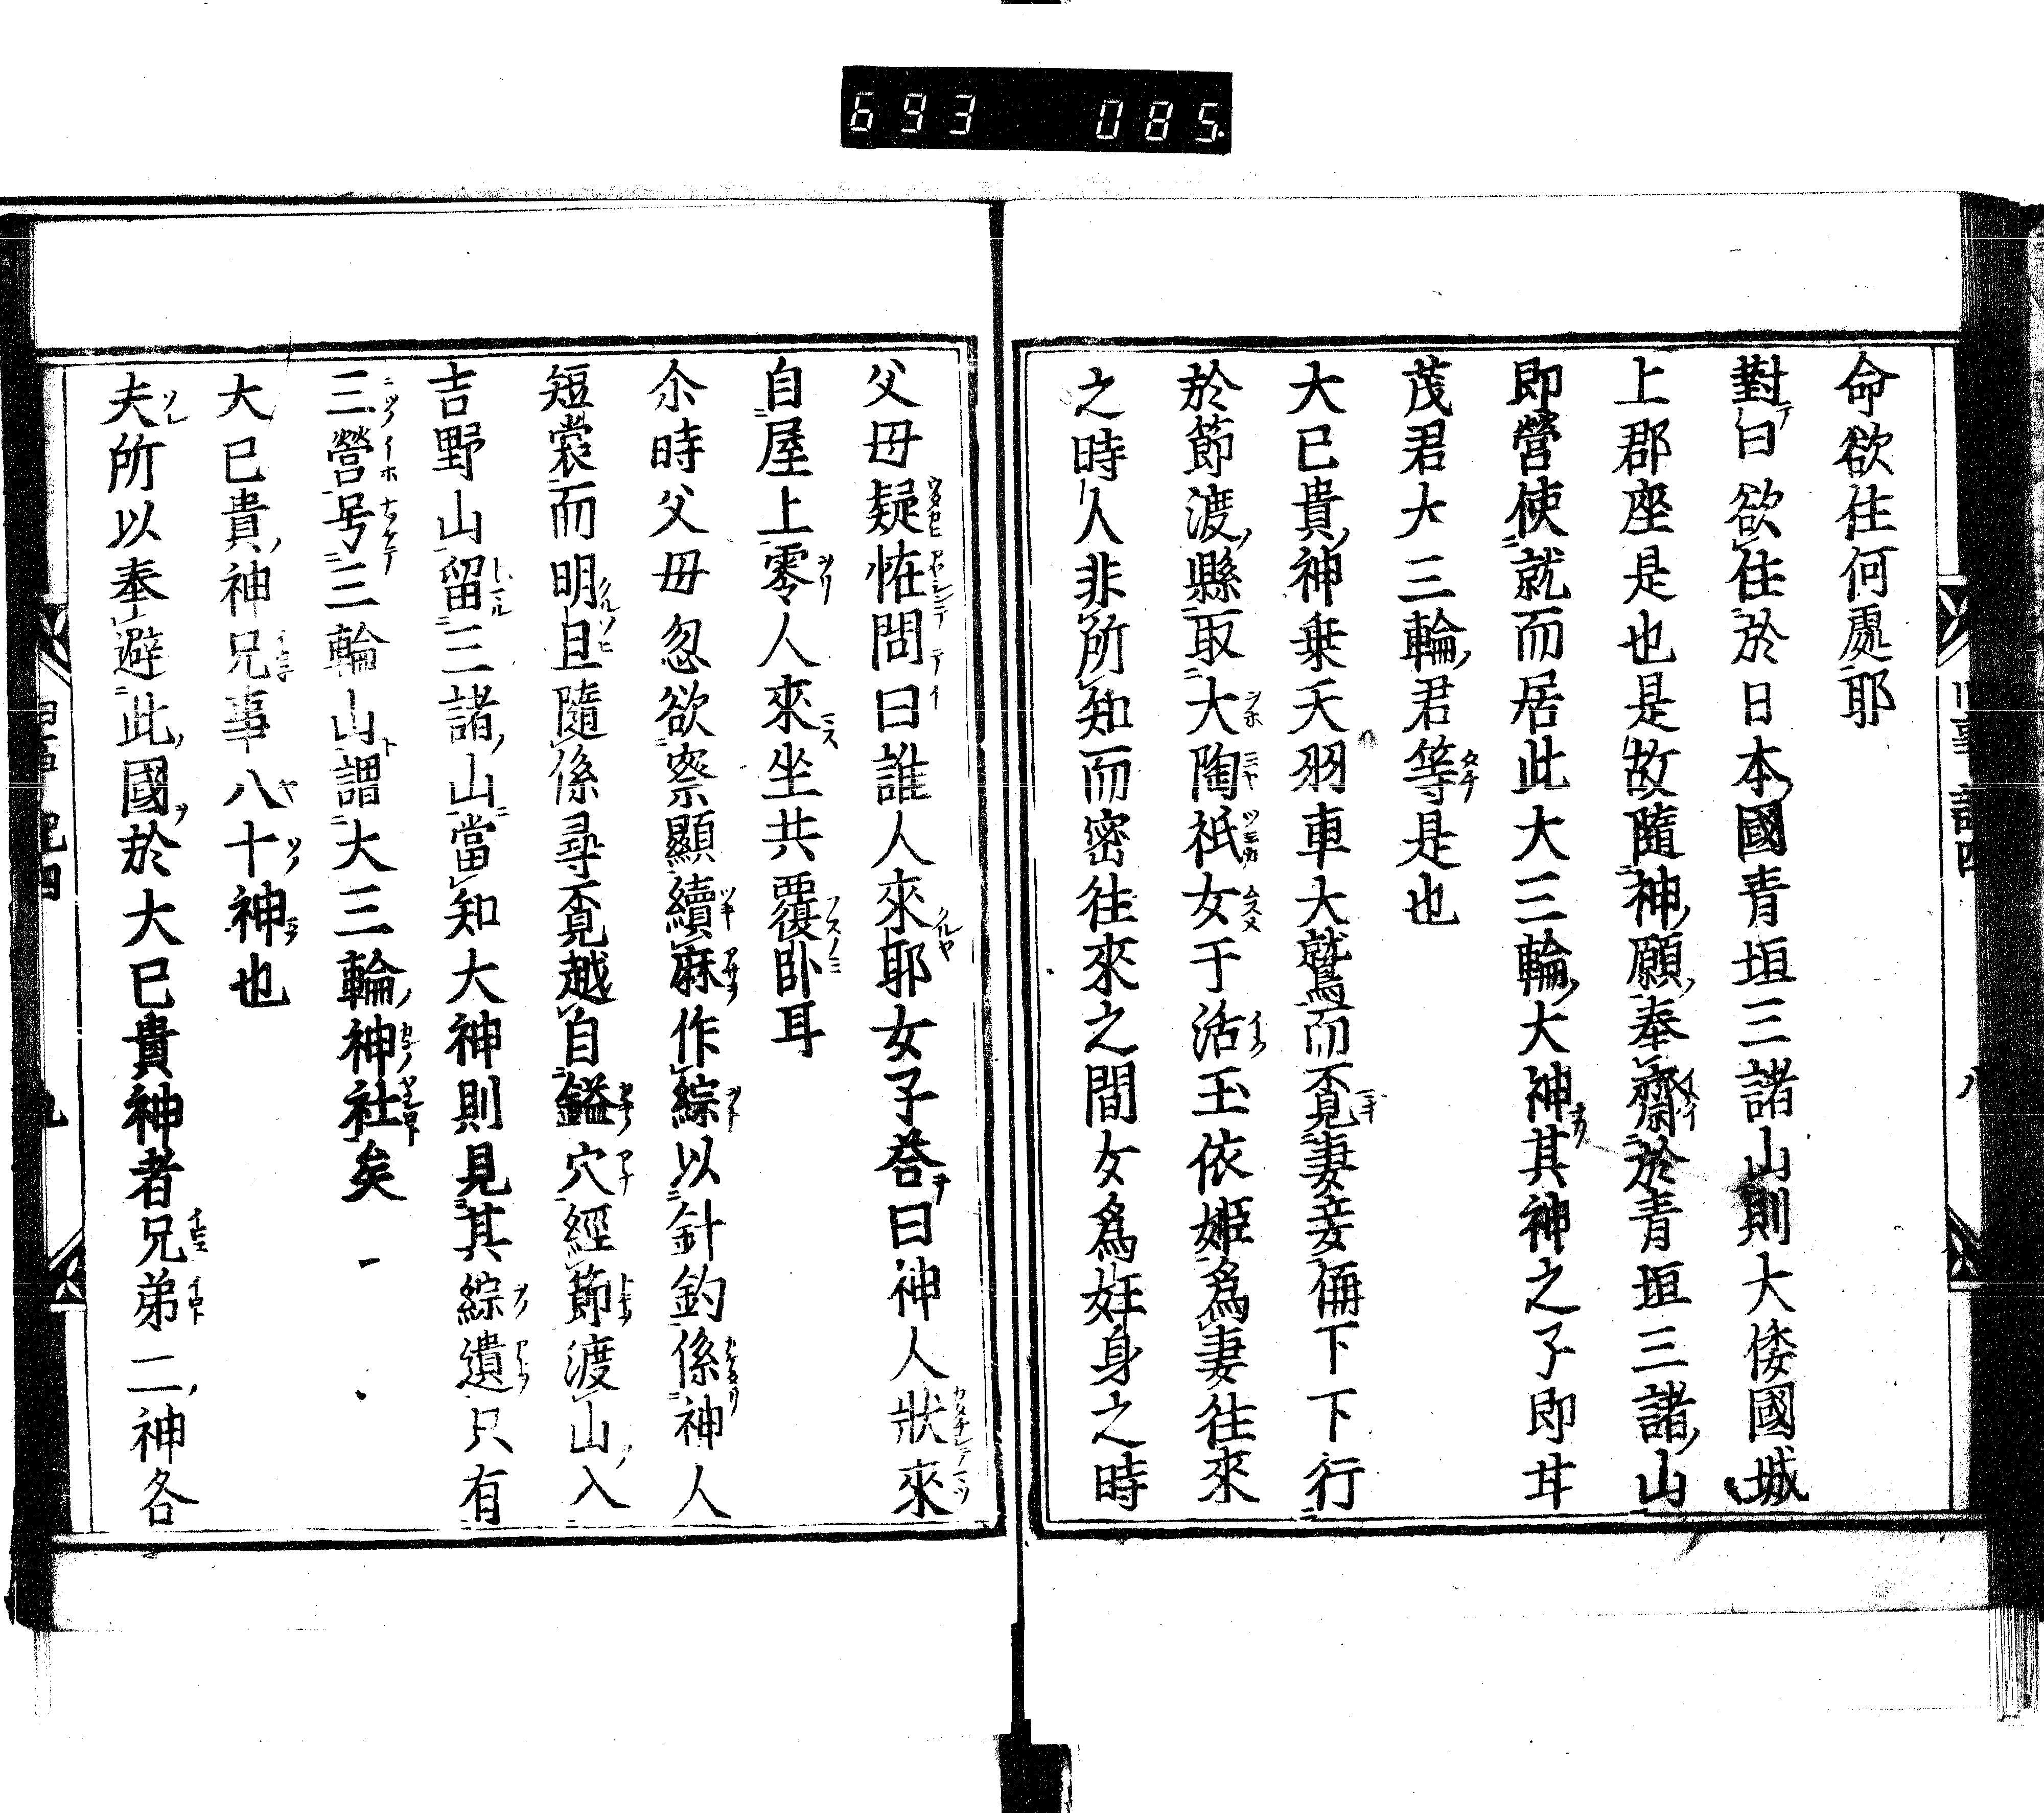 693 085.
命欲住何處耶
對曰欲住於日本國青垣三諸山則大倭國城
上郡座是也是故隨神願奉齋於青垣三諸山
即營使就而居此大三輪大神其神之子即甘
茂君大三輪君等是也
大已貴神乗天羽車大鷲而覓妻妾俻下下行
於節渡縣取大陶祇女于活玉依姫爲妻往來
之時人非所知而密往來之間女爲妊身之時
父毋疑恠問曰誰人來耶女子荅曰神人狀來
自屋上零人來坐共覆卧耳
尒時父毋忽欲察顯續麻作綜以針釣係神人
短裳而明旦隨係尋覓越自鎰穴經節渡山入
吉野山留三諸山當知大神則見其綜遺只有
三營号三輪山謂大三輪神社矣
大已貴神兄事八十神也
夫所以奉避此國於大已貴神者兄弟二神各